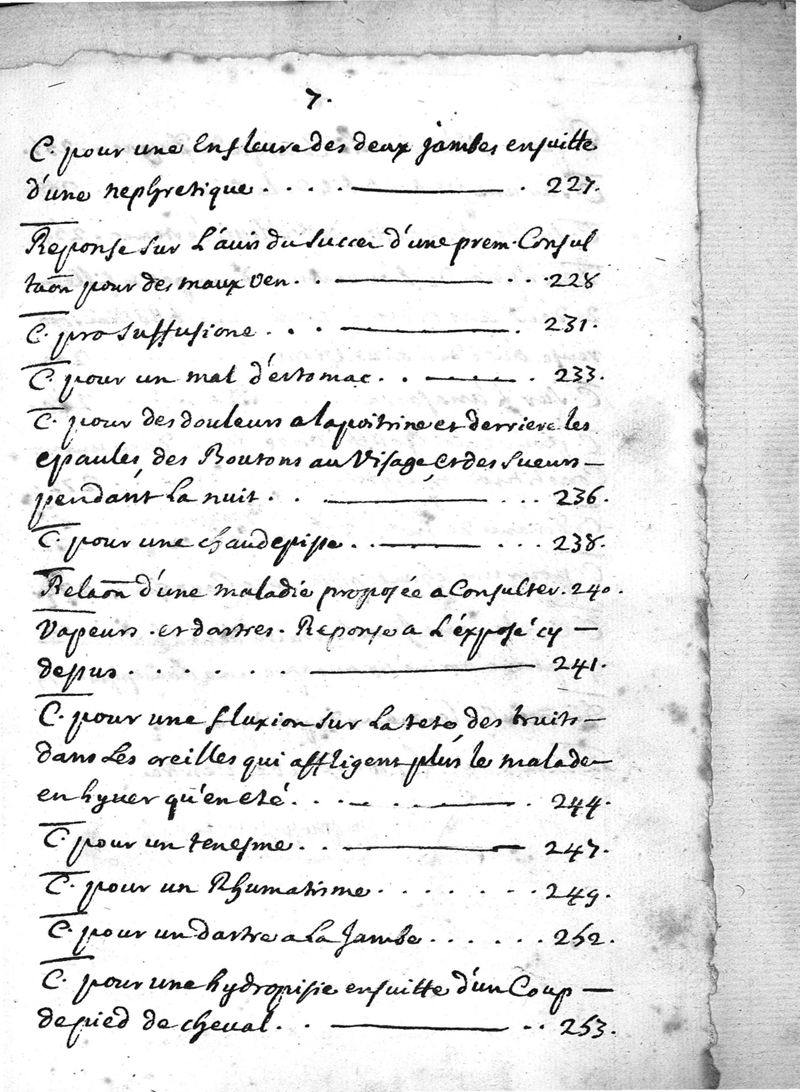 7.
C. pour une Enfleure des deux jambes ensuitte
d'une nephretique . . . . ——— . 227.
Reponse sur L'avis du succei d'une prem. Consul
taõn pour des maux ven. . ——— . . 228
C. pro suffusione . . . ——— . 231.
C. pour un mal d'estomac . . ——— . 233.
C. pour des douleurs a la poitrine et derriere les
epaules, des Boutons au Visage, et des sueurs —
pendant La nuit . . ——— . . . 236.
C. pour une chaudepisse . . ——— . . . 238.
Relaõn d'une maladie proposée a Consulter . 240.
Vapeurs . et dartres . Reponse a L'éxposé cy —
depus . . . . . . ——— 241.
C. pour une fluxion sur La tete des bruits —
dans Les oreilles qui affligent plus le malade
en hyver qu'en eté . . . — . ——— . 244.
C. pour un tenesme . . ——— 247.
C. pour un Rhumatisme . . . . . . . 249.
C. pour un dartre a La Jambe . . . . . . 252.
C. pour une hydropisie ensuitte d'un Coup —
de pied de cheval . . ——— . . 253.